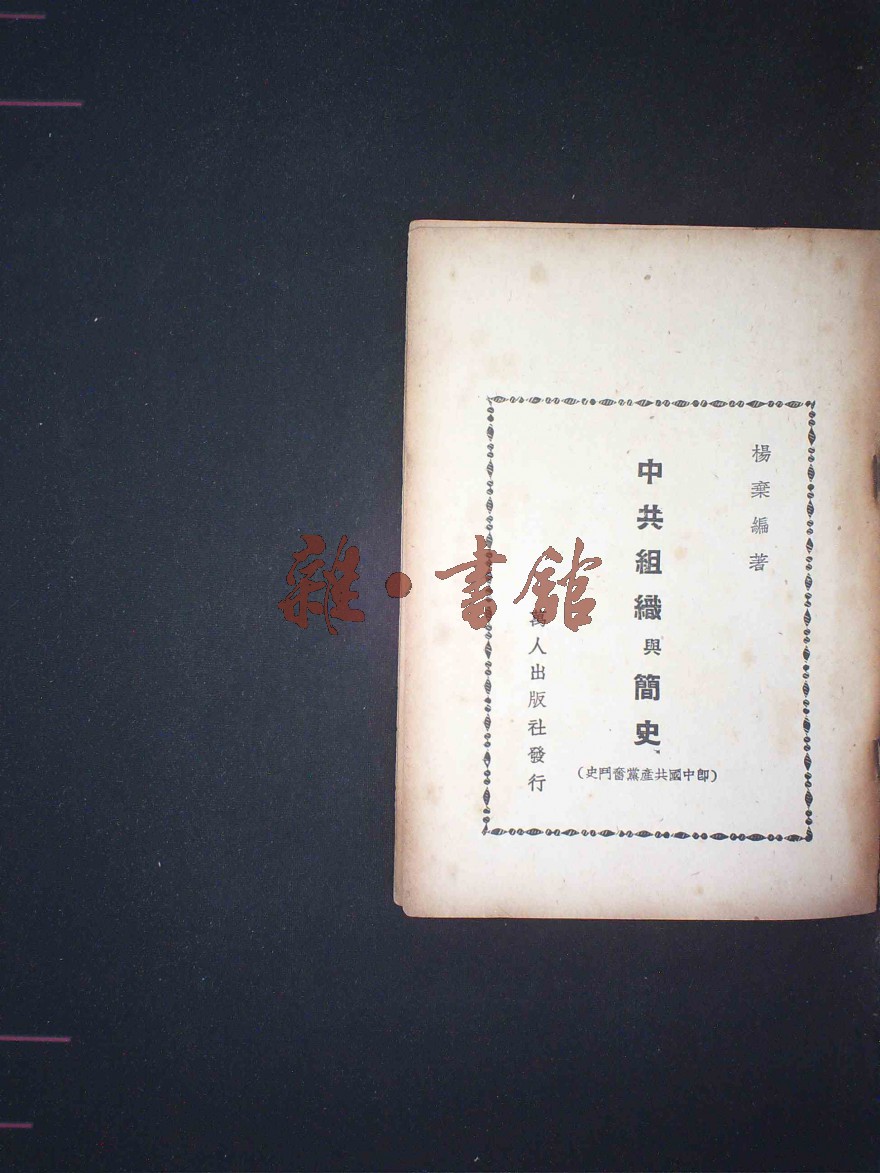 楊棄編著
中共組織與簡史
(即中國共產黨奮鬥史)
萬人出版社發行
雜·書館